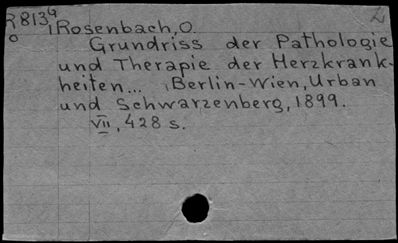 R 8134
o
Rosenbach, O.
Grundriss der Pathologie
und Therapie der Herzkrank-
heiten... Berlin-Wien, Urban
und Schwarzenberg, 1899.
VII, 428 s.